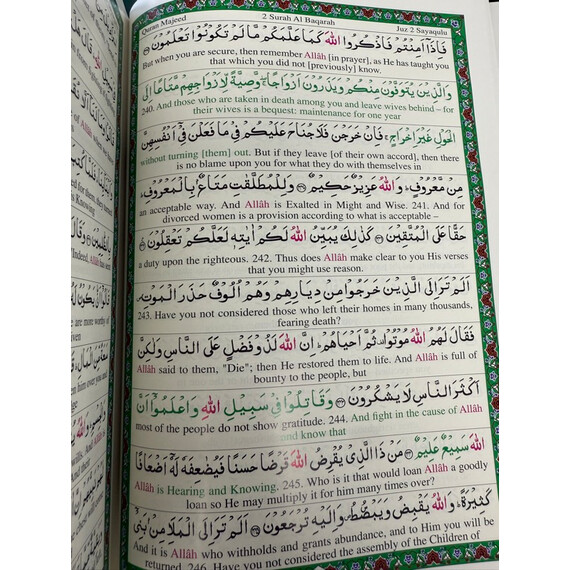 Quran Majeed 2 Surah Al Baqarah Juz 2 Sayaqulu
فَاِذَآ اَمِنْتُمْ فَاذْكُرُوا اللّٰهَ كَمَا عَلَّمَكُمْ مَّا لَمْ تَكُوْنُوْا تَعْلَمُوْنَ
But when you are secure, then remember Allâh [in prayer], as He has taught you
that which you did not [previously] know.
وَالَّذِيْنَ يُتَوَفَّوْنَ مِنْكُمْ وَيَذَرُوْنَ اَزْوَاجًا ۖ وَّصِيَّةً لِّاَزْوَاجِهِمْ مَّتَاعًا اِلَى
240. And those who are taken in death among you and leave wives behind – for
their wives is a bequest: maintenance for one year
الْحَوْلِ غَيْرَ اِخْرَاجٍ ۚ فَاِنْ خَرَجْنَ فَلَا جُنَاحَ عَلَيْكُمْ فِيْ مَا فَعَلْنَ فِيْٓ اَنْفُسِهِنَّ
without turning [them] out. But if they leave [of their own accord], then there
is no blame upon you for what they do with themselves in
مِنْ مَّعْرُوْفٍ ؕ وَاللّٰهُ عَزِيْزٌ حَكِيْمٌ وَلِلْمُطَلَّقٰتِ مَتَاعٌۢ بِالْمَعْرُوْفِ ؕ
an acceptable way. And Allâh is Exalted in Might and Wise. 241. And for
divorced women is a provision according to what is acceptable –
حَقًّا عَلَى الْمُتَّقِيْنَ كَذٰلِكَ يُبَيِّنُ اللّٰهُ لَكُمْ اٰيٰتِهٖ لَعَلَّكُمْ تَعْقِلُوْنَ
a duty upon the righteous. 242. Thus does Allâh make clear to you His verses
that you might use reason.
اَلَمْ تَرَ اِلَى الَّذِيْنَ خَرَجُوْا مِنْ دِيَارِهِمْ وَهُمْ اُلُوْفٌ حَذَرَ الْمَوْتِ ۪
243. Have you not considered those who left their homes in many thousands,
fearing death?
فَقَالَ لَهُمُ اللّٰهُ مُوْتُوْا ۫ ثُمَّ اَحْيَاهُمْ ؕ اِنَّ اللّٰهَ لَذُوْ فَضْلٍ عَلَى النَّاسِ وَلٰكِنَّ
Allâh said to them, "Die"; then He restored them to life. And Allâh is full of
bounty to the people, but
اَكْثَرَ النَّاسِ لَا يَشْكُرُوْنَ وَقَاتِلُوْا فِيْ سَبِيْلِ اللّٰهِ وَاعْلَمُوْٓا اَنَّ
most of the people do not show gratitude. 244. And fight in the cause of Allâh
and know that
اللّٰهَ سَمِيْعٌ عَلِيْمٌ مَنْ ذَا الَّذِيْ يُقْرِضُ اللّٰهَ قَرْضًا حَسَنًا فَيُضٰعِفَهٗ لَهٗٓ اَضْعَافًا
Allâh is Hearing and Knowing. 245. Who is it that would loan Allâh a goodly
loan so He may multiply it for him many times over?
كَثِيْرَةً ؕ وَاللّٰهُ يَقْبِضُ وَيَبْصُۜطُ ۪ وَاِلَيْهِ تُرْجَعُوْنَ اَلَمْ تَرَ اِلَى الْمَلَاِ مِنْۢ بَنِيْٓ
And it is Allâh who withholds and grants abundance, and to Him you will be
returned. 246. Have you not considered the assembly of the Children of